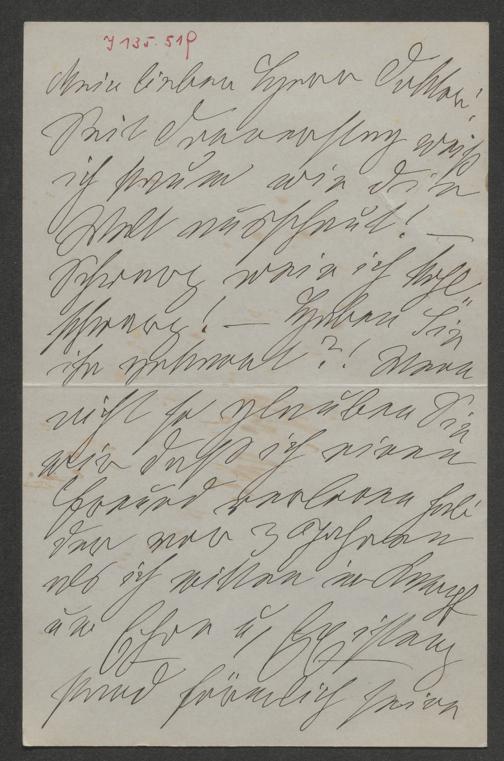 J 135.519
Mein lieber Herr Doktor!
Seit Donnerstag weiß
ich kaum wie die
Welt ausschaut! —
Schwarz weiß ich sehr
schwarz! — Haben Sie
ihn gekannt?! Wenn
nicht so glauben Sie
mir daß ich einen
Freund verloren habe
der vor 3 Jahren
als ich mitten im Kampf
um Ehre u. Existenz
stand förmlich seine